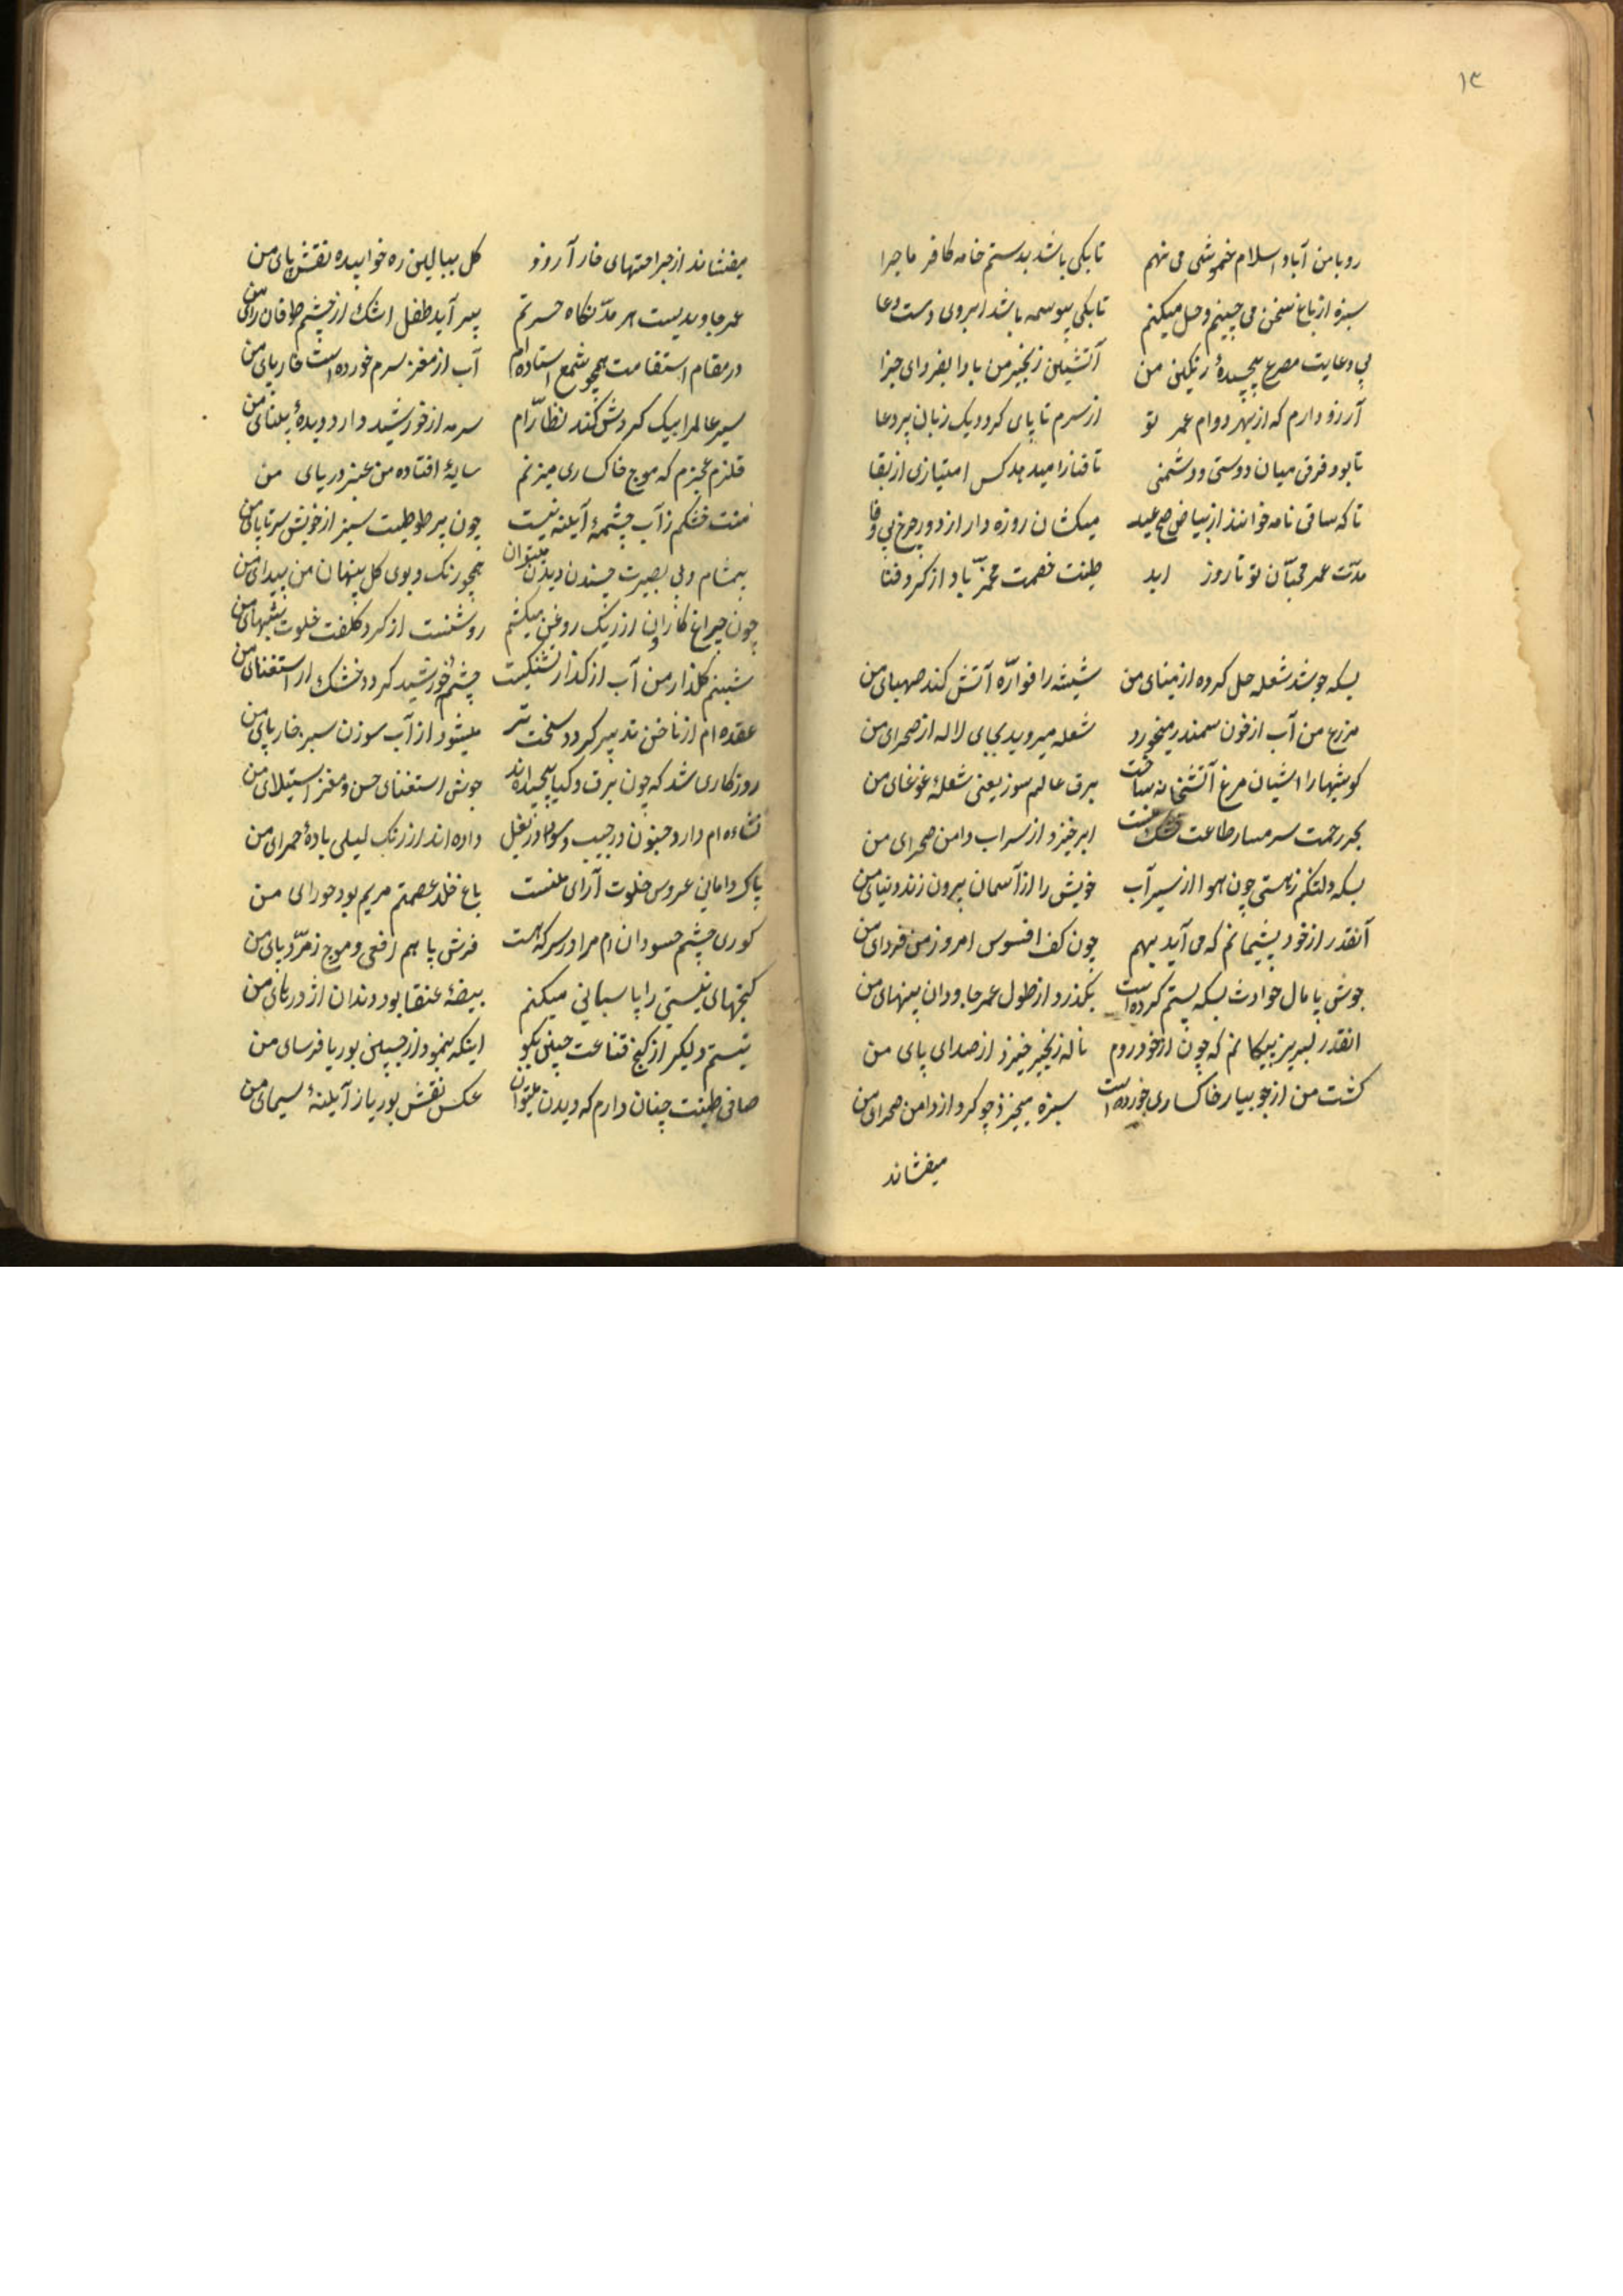 ۱۳
رو بامن آباد اسلام خموشی می نهم تا بکی باشد بدستم خامه کافر ماجرا
سبزه از باغ سخن می چینم و حل میکنم تا بکی بیوسمه باشد ابروی دست دعا
بی دعایت مصرع پیچیدهٔ رنگین من آتشین زنجیر من بادا بفردای جزا
آرزو دارم که از بهر دوام عمر تو از سرم تا پای گردد یک زبان پر دعا
تا بود فرق میان دوستی و دشمنی تا فنا را میدهد کس امتیازی از بقا
تا که ساقی نامه خوانند از بیاض صبح عید میکشان روزه دار از دور چرخ بی وفا
مدّت عمر محبّان تو تا روز ابد طینت خصمت مخمّر باد از گرد فنا
بسکه جوشد شعله حل کرده از مینای من شیشه را فوارّه آتش کند صهبای من
مزرع من آب از خون سمندر میخورد شعله میروید بجای لاله از صحرای من
گوشها را آشیان مرغ آتشخانه ساخت برق عالم سوز یعنی شعلهٔ غوغای من
بحر رحمت سرمسار طاعت خشک منست ابر خیزد از سراب دامن صحرای من
بسکه دلتنگم ز هستی چون هوا از سیر آب خویش را از آسمان بیرون زند دنیای من
آنقدر از خود پشیمانم که می آید بهم چون کف افسوس امروز من و فردای من
جوش پامال حوادث بسکه پستم کرده است بگذرد از طول عمر جاودان پهنای من
انقدر لبریز پیکانم که چون از خود روم ناله زنجیر خیزد از صدای پای من
کشت من از جویبار خاکساری خورده است سبزه میخیزد چو گرد از دامن صحرای من
میفشاند
میفشاند از جراحتهای خار آرزو گل ببالین ره خوابیده نقش پای من
عمر جاویدیست هر مدّ نگاه حسرتم پیر آید طفل اشک از چشم طوفان زای من
در مقام استقامت همچو شمع استاده ام آب از مغز سرم خورده است خار پای من
سیر عالم را بیک گردش کند نظّاره ام سرمه از خورشید دارد دیدهٔ بینای من
قلزم عجزم که موج خاکساری میزنم سایهٔ افتاده من عنبر دریای من
منت خشکم ز آب چشمهٔ آیینه نیست چون پر طوطیت سبز از خویش سر تا پای من
بیمشام و بی بصیرت چیدن و دیدن میتوان همچو رنگ و بوی گل پنهان من پیدای من
چون چراغ کاروان از ریک روغن میکشم روشنست از گرد کلفت خلوت شبهای من
شبنم گلزار من آب از گداز تشنگیست چشمهٔ خورشید گردد خشک از استغنای من
عقده ام از ناخن تدبیر گردد سخت تر میشود از آب سوزن سبز خار پای من
روزگاری شد که چون برق و گیا پیچیده اند جوش استغنای حسن و مغز استیلای من
نشاءه ام دارد جنون در جیب و سودا در بغل داده اند از رنگ لیلی بادهٔ حمرای من
پاک دامانی عروس خلوت آرای منست باغ خلد عصمتم مریم بود حورای من
کوری چشم حسودان ام مرا در سر که هست فرش پا هم افعی و موج زمرّد پای من
گنجهای نیستی را پاسبانی میکنم بیضهٔ عنقا بود دندان اژدرهای من
نیستم دلگیر از گنج قناعت چین بگو اینکه بنمود از جبین بوریا فرسای من
صافی طینت چنان دارم که دیدن میتوان عکس نقش بوریا از آیینهٔ سیمای من